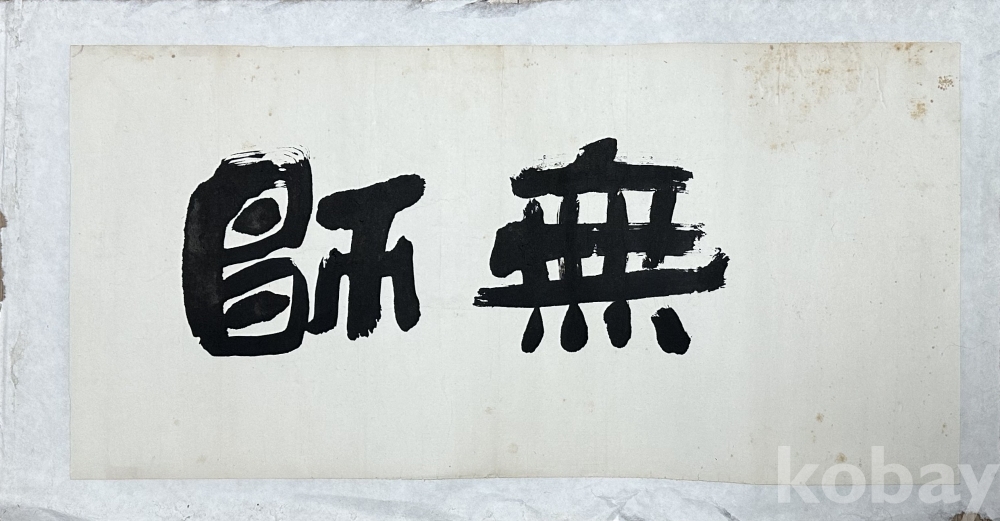 無師
kobay